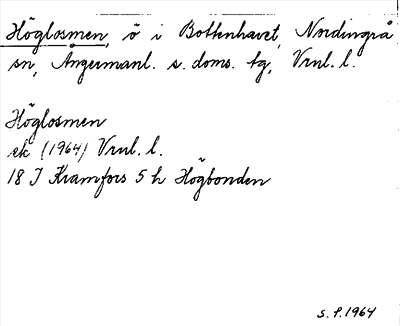 Höglosmen, ö i Bottenhavet, Nordingrå
sn, Ångermanl. s. doms. tg, Vrnl. l.
Höglosmen
ek (1964) Vrnl. l.
18 J Kramfors 5 h Högbonden
s. f. 1964